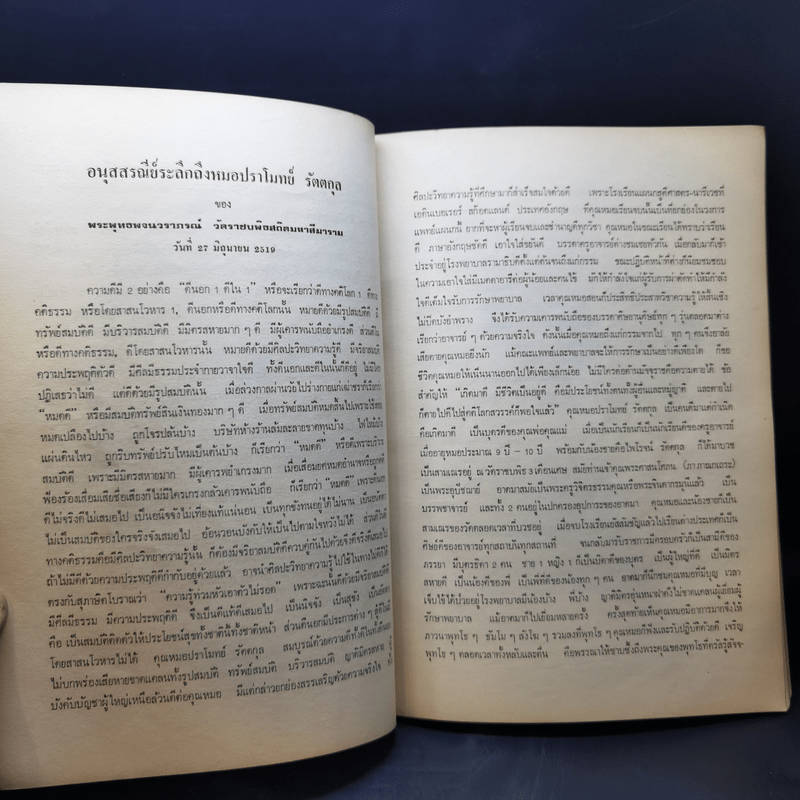 อนุสสรณีย์ระลึกถึงหมอปราโมทย์ รัตตกุล
ของ
พระพุทธพจนวราภรณ์ วัดราชบพิธสถิตมหาสีมาราม
วันที่ 27 มิถุนายน 2519
ความดีมี 2 อย่างคือ “ดีนอก 1 ดีใน 1” หรือจะเรียกว่าดีทางคดีโลก 1 ดีทาง
คดีธรรม หรือโดยสาสนโวหาร 1, ดีนอกหรือดีทางคดีโลกนั้น หมายดีด้วยมีรูปสมบัติดี มี
ทรัพย์สมบัติดี มีบริวารสมบัติดี มีมิตรสหายมาก ๆ ดี มีผู้เคารพนับถือยำเกรงดี ส่วนดีใน
หรือดีทางคดีธรรม, ดีโดยสาสนโวหารนั้น หมายดีด้วยมีศิลปะวิทยาความรู้ดี มีจริยาสมบัติ
ความประพฤติตัวดี มีศีลมีธรรมประจำกายวาจาใจดี ทั้งดีนอกและดีในนั้นก็ดีอยู่ ไม่มีใคร
ปฏิเสธว่าไม่ดี แต่ดีด้วยมีรูปสมบัตินั้น เมื่อล่วงกาลผ่านวัยไปร่างกายแก่เฒ่าชราก็เรียกว่า
“หมดดี” หรือมีสมบัติทรัพย์สินเงินทองมาก ๆ ดี เมื่อทรัพย์สมบัติหมดสิ้นไปเพราะใช้
หมดเปลืองไปบ้าง ถูกโจรปล้นบ้าง บริษัทห้างร้านล่มละลายขาดทุนบ้าง ไฟไหม้บ้าง
แผ่นดินไหว ถูกริบทรัพย์ปรับไหมเป็นต้นบ้าง ก็เรียกว่า “หมดดี” หรือดีเพราะบริวาร
สมบัติดี เพราะมีมิตรสหายมาก มีผู้เคารพยำเกรงมาก เมื่อเสื่อมยศหมดอำนาจหรือถูกคดี
ฟ้องร้องเสื่อมเสียชื่อเสียงก็ไม่มีใครเกรงกลัวเคารพนับถือ ก็เรียกว่า “หมดดี” เพราะฉะนั้น
ดีไม่จริงดีไม่เสมอไป เป็นอนิจจังไม่เที่ยงแท้แน่นอน เป็นทุกขังทนอยู่ได้ไม่นาน เป็นอนัตตา
ไม่เป็นสมบัติของใครจริงจังเสมอไป อ้อนวอนบังคับให้เป็นไปตามใจหวังไม่ได้ ส่วนดีใน
ทางคดีธรรมคือมีศิลปะวิทยาความรู้นั้น ก็ต้องมีจริยาสมบัติดีควบคู่กันไปด้วยจึงดีจริงดีแท้
ถ้าไม่มีดีด้วยความประพฤติดีกำกับอยู่ด้วยแล้ว อาจนำศิลปะวิทยาความรู้ไปใช้ในทางไม่ดีก็ได้
ตรงกับสุภาษิตโบราณว่า “ความรู้ท่วมหัวเอาตัวไม่รอด” เพราะฉะนั้นดีด้วยมีจริยาสมบัติดี
มีศีลมีธรรม มีความประพฤติดี จึงเป็นดีแท้ดีเสมอไป เป็นนิจจัง เป็นสุขัง เป็นอัตตา
คือ เป็นสมบัติติดตัวให้ประโยชน์สุขทั้งชาตินี้ทั้งชาติหน้า ส่วนดีนอกมีประการต่าง ๆ
โดยสาสนโวหารไม่ได้ คุณหมอปราโมทย์ รัตตกุล สมบูรณ์ด้วยความดีทั้งดีในทั้งดีนอก
ไม่บกพร่องเสียหายขาดแคลนทั้งรูปสมบัติ ทรัพย์สมบัติ บริวารสมบัติ ญาติมิตรสหาย
บังคับบัญชาผู้ใหญ่เหนือล้วนดีต่อคุณหมอ มีแต่กล่าวยกย่องสรรเสริญด้วยความจริงใจ
ศิลปะวิทยาความรู้ที่ศึกษามาก็สำเร็จสมใจด้วยดี เพราะโรงเรียนแผนกสูติศาสตร์-นารีเวชที่
เอดินเบอเรอร์ สก๊อตแลนด์ ประเทศอังกฤษ ที่คุณหมอเรียนจบนั้นเป็นที่ยกย่องในวงการ
แพทย์แผนกนี้ ยากที่จะหาผู้เรียนจบและชำนาญดีทุกวิชา คุณหมอในขณะเรียนได้รับคำชมว่าเรียน
ดี ภาษาอังกฤษชัดดี เอาใจใส่ขยันดี บรรดาครูอาจารย์ต่างชมเชยทั่วกัน เมื่อกลับมาก็เข้า
ประจำอยู่โรงพยาบาลรามาธิบดีตั้งแต่ต้นจนถึงแก่กรรม ขณะปฏิบัติหน้าที่ต่างก็นิยมชมชอบ
ในความเอาใจใส่มีเมตตาอารีต่อผู้น้อยและคนไข้ มักให้กำลังใจแก่ผู้รับการผ่าตัดทำให้มีกำลัง
ใจดีเต็มใจรับการรักษาพยาบาล เวลาคุณหมอสอนก็ประสิทธิ์ประสาทวิชาความรู้ให้สิ้นเชิง
ไม่ปิดบังอำพราง จึงได้รับความเคารพนับถือของบรรดาศิษยานุศิษย์ทุก ๆ รุ่นตลอดมาต่าง
เรียกว่าอาจารย์ ๆ ด้วยความจริงใจ ดังนั้นเมื่อคุณหมอถึงแก่กรรมจากไป ทุก ๆ คนจึงอาลัย
เสียดายคุณหมอยิ่งนัก แม้คณะแพทย์และพยาบาลจะให้การรักษาเป็นอย่างดีเพียงใด ก็ขอ
ชีวิตคุณหมอให้เนิ่นนานออกไปได้เพียงเล็กน้อย ไม่มีใครต่อต้านมัจจุราชคือความตายได้ ข้อ
สำคัญให้ “เกิดมาดี มีชีวิตเป็นอยู่ดี คือมีประโยชน์ทั้งตนทั้งผู้อื่นและหมู่ญาติ และตายไป
ก็ตายไปดีไปสู่คติโลกสวรรค์ก็พอใจแล้ว” คุณหมอปราโมทย์ รัตตกุล เป็นคนดีมาแต่กำเนิด
คือเกิดมาดี เป็นบุตรดีของคุณพ่อคุณแม่ เมื่อเป็นนักเรียนก็เป็นนักเรียนดีของครูอาจารย์
เมื่ออายุหมอประมาณ 9 ปี - 10 ปี พร้อมกับน้องชายคือไพโรจน์ รัตตกุล ก็ได้มาบวช
เป็นสามเณรอยู่ ณ วัดราชบพิธ 3 เดือนเศษ สมัยท่านเจ้าคุณพระศาสนโศภน (ภา ภาณกเถระ)
เป็นพระอุปัชฌาย์ อาตมาสมัยเป็นพระครูวิจิตรธรรมคุณหรือพระจินดากรมุนีแล้ว เป็น
บรรพชาจารย์ และทั้ง 2 คนอยู่ในปกครองอุปการะของอาตมา คุณหมอและน้องชายก็เป็น
สามเณรดีของวัดตลอดเวลาที่บวชอยู่ เมื่อจบโรงเรียนอัสสัมชัญแล้วไปเรียนต่างประเทศก็เป็น
ศิษย์ดีของอาจารย์ทุกสถาบันทุกสถานที่ จนกลับมารับราชการมีครอบครัวก็เป็นสามีดีของ
ภรรยา มีบุตรธิดา 2 คน ชาย 1 หญิง 1 ก็เป็นบิดาดีของบุตร เป็นผู้ใหญ่ที่ดี เป็นมิตร
สหายดี เป็นน้องดีของพี่ เป็นพี่ที่ดีของน้องทุก ๆ คน อาตมาก็นึกชมคุณหมอที่มีบุญ เวลา
เจ็บไข้ได้ป่วยอยู่โรงพยาบาลมีน้องบ้าง พี่บ้าง ญาติมิตรรุ่นหนาน่าตาบ้างไม่ขาดแคลนผู้เยี่ยมผู้
รักษาพยาบาล แม้อาตมาก็ไปเยี่ยมหลายครั้ง ครั้งสุดท้ายเห็นคุณหมอมีอาการมากจึงให้
ภาวนาพุทโธ ๆ ธัมโม ๆ สังโฆ ๆ รวมลงที่พุทโธ ๆ คุณหมอก็ฟังและรับปฏิบัติด้วยดี เจริญ
พุทโธ ๆ ตลอดเวลาทั้งหลับและตื่น คือพรรณาให้ซาบซึ้งถึงพระคุณของพุทโธที่ตรัสรู้สัจจ-